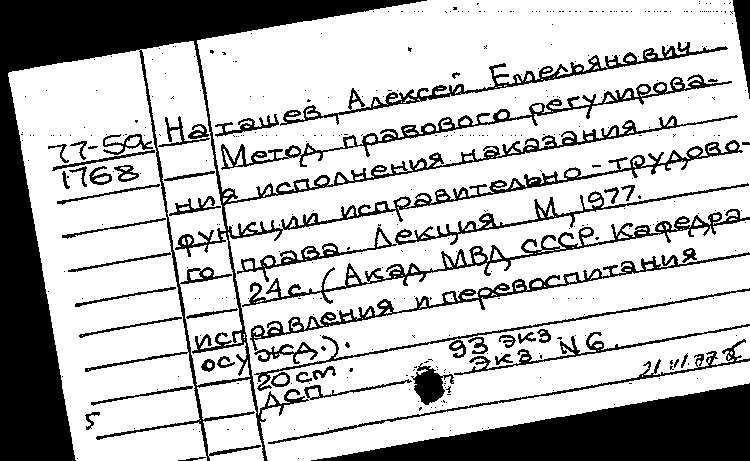 Наташев, Алексей Емельянович.
77-59с
1768
Метод правового регулирова-
ния исполнения наказания и
функции исправительно-трудово-
го права. Лекция. М, 1977.
24с. (Акад. МВД СССР. Кафедра
исправления и перевоспитания
осужд.).
20 cm. 93 экз
ДСП. экз. N6.
21.VI.77
5